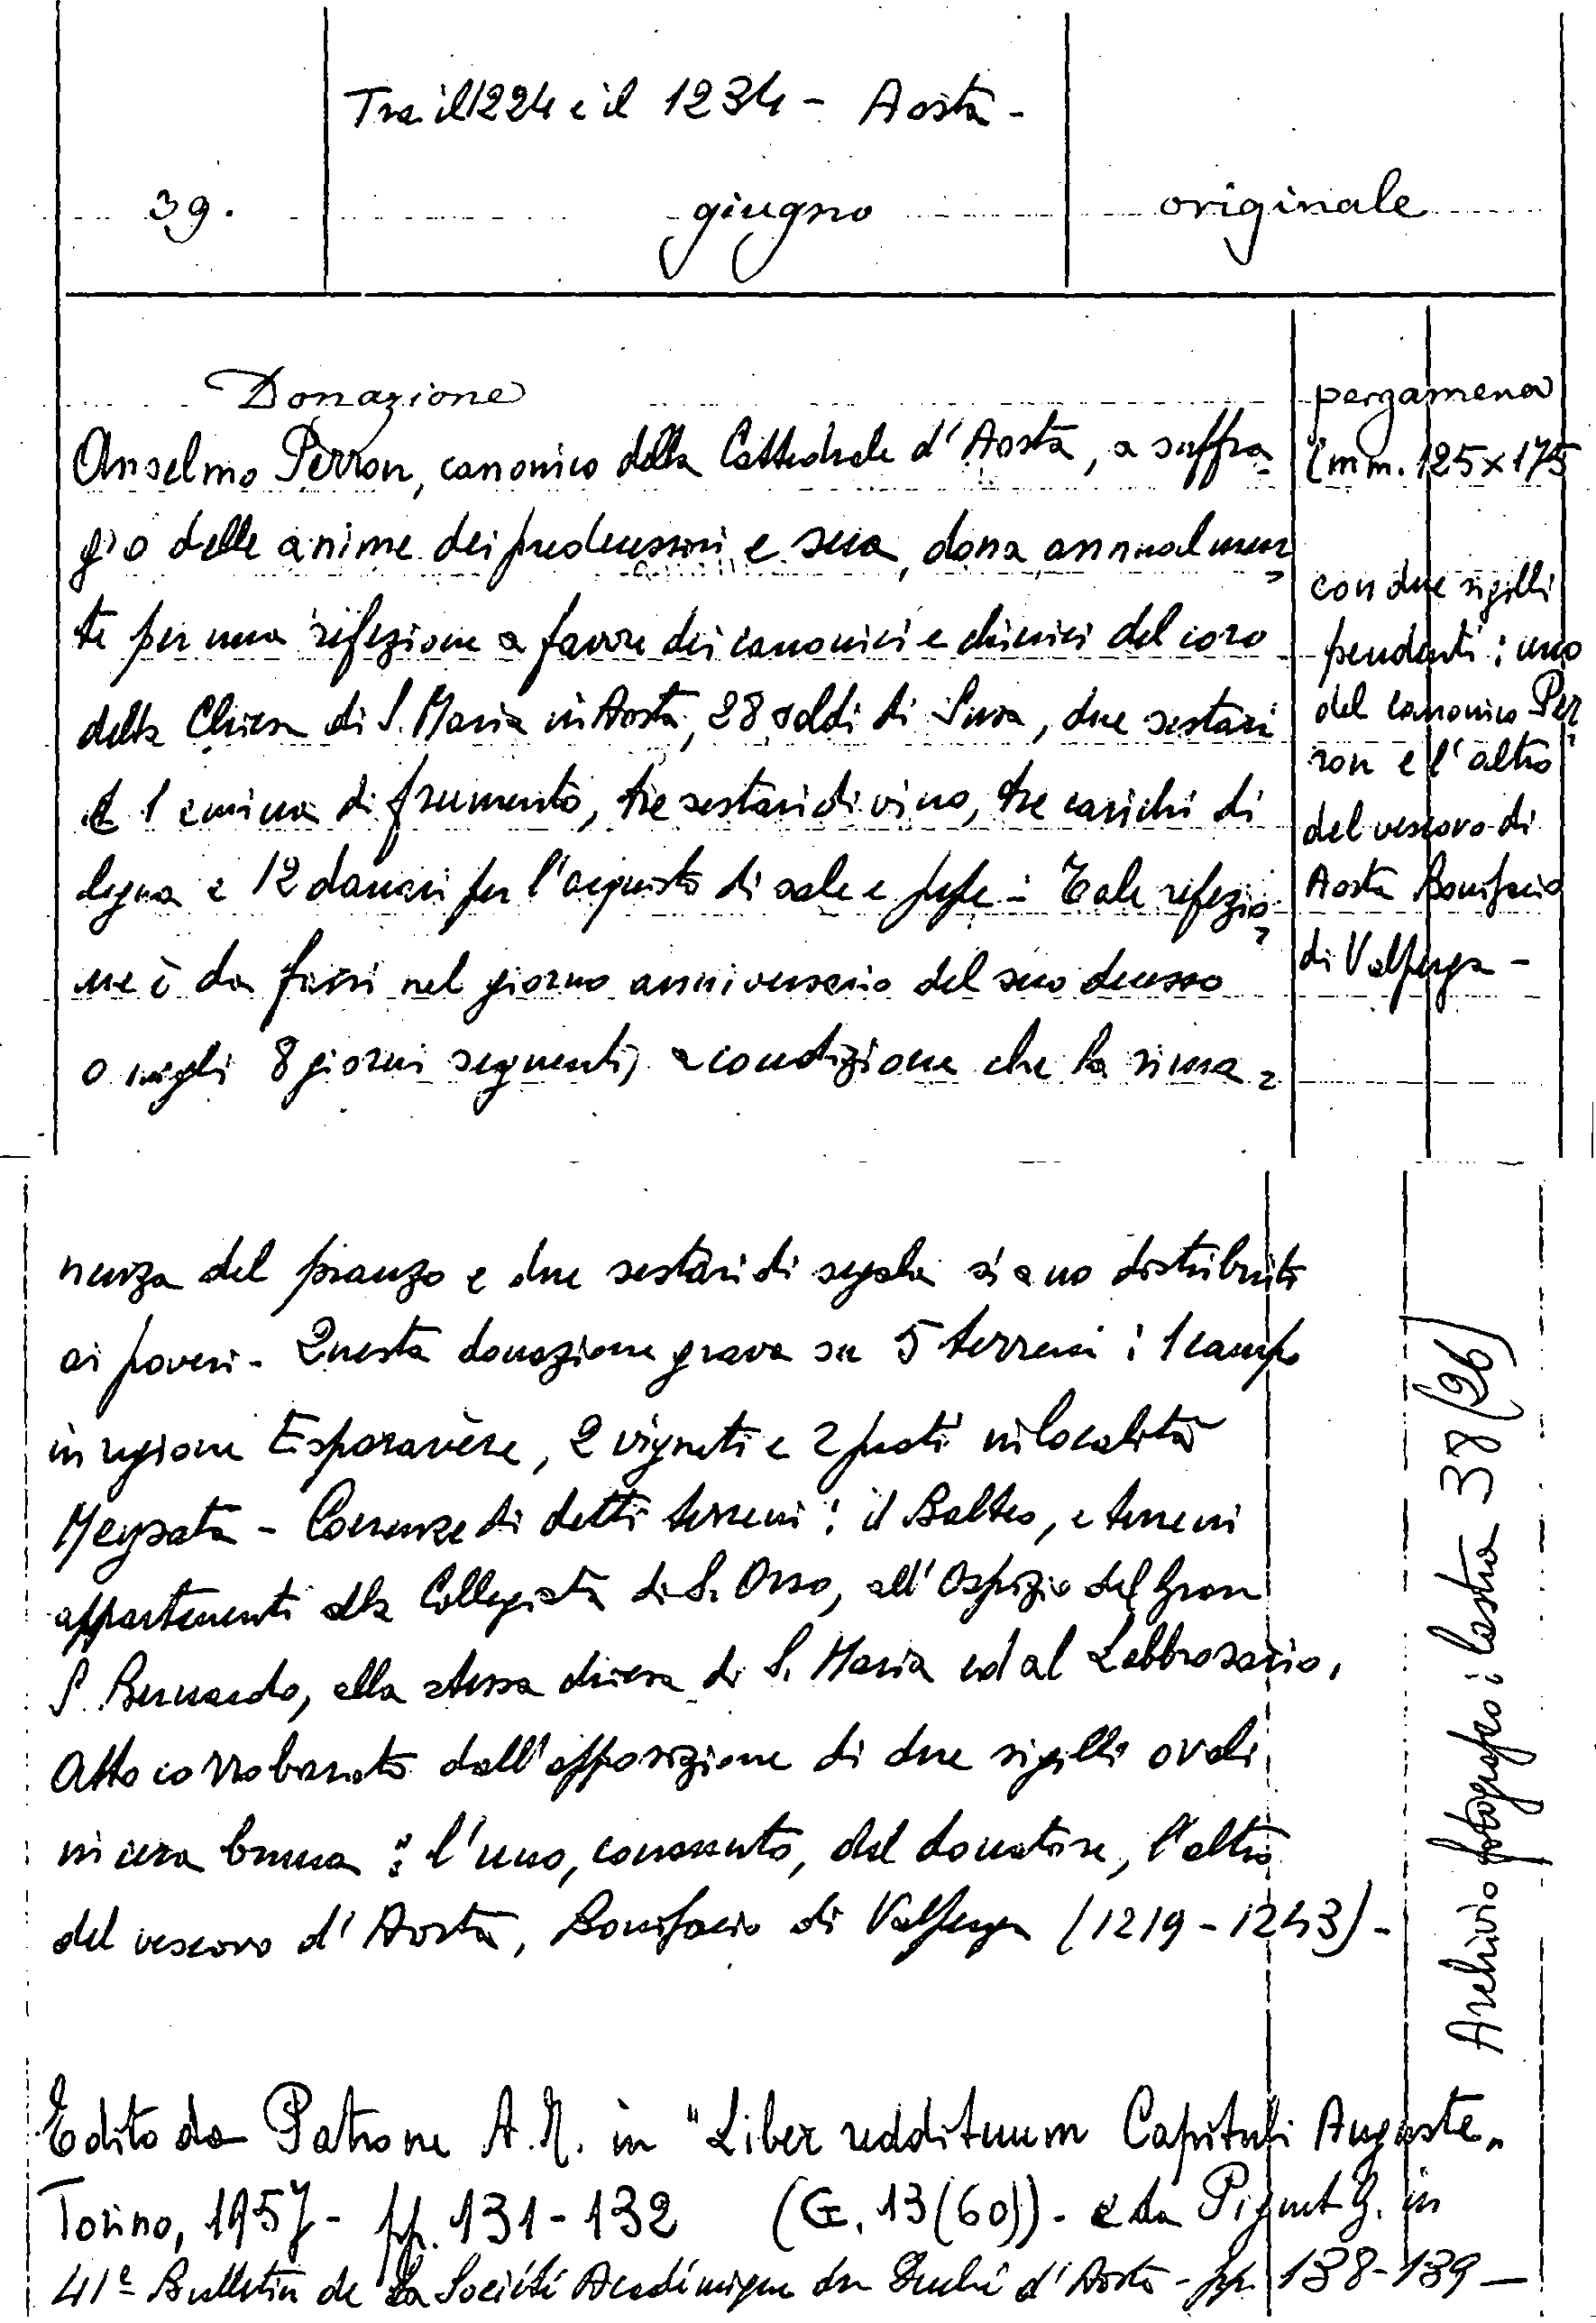 Tra il 1224 e il 1234 - Aosta -
39.
giugno
originale
Donazione
Anselmo Perron, canonico della Cattedrale d'Aosta, a suffra-
gio delle anime dei predecessori e sua, dona annualmen-
te per una refezione a favore dei canonici e chierici del coro
della Chiesa di S. Maria in Aosta, 28 soldi di Susa, due sestari
e 1 emina di frumento, tre sestari di vino, tre carichi di
legna e 12 danari per l'acquisto di sale e pepe - Tale refezio-
ne è da farsi nel giorno anniversario del suo decesso
o negli 8 giorni seguenti, a condizione che la rima-
pergamena
(mm. 125x175
con due sigilli
pendenti: uno
del canonico Per-
ron e l'altro
del vescovo di
Aosta Bonifacio
di Valperga -
nenza del pranzo e due sestari di segala siano distribuiti
ai poveri - Questa donazione grava su 5 terreni: 1 campo
in regione Esparavère, 2 vigneti e 2 prati in località
Meysata - Coerenze di detti terreni: il Balteo, e terreni
appartenenti alla Collegiata di S. Orso, all'Ospizio del Gran
S. Bernardo, alla stessa chiesa di S. Maria ed al Lebbrosario,
Atto corroborato dall'apposizione di due sigilli ovali,
in cera bruna: l'uno, consunto, del donatore, l'altro
del vescovo d'Aosta, Bonifacio di Valperga (1219-1243) -
Archivio fotografico: lastra 38 (26)
Edito da Patrone A.M. in "Liber reddituum Capituli Auguste"
Torino, 1957 - pp. 131-132 (G. 13(60)) - e da Pignet G. in
41e Bulletin de La Société Académique du Duché d'Aosta - pp. 138-139 -